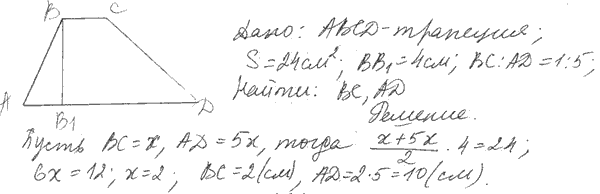 B C
Дано: ABCD-трапеция;
S=24см²; BB₁=4см; BC:AD=1:5;
A D
Найти: BC, AD
B₁
Решение.
Пусть BC=x, AD=5x, тогда (x+5x)/2 · 4=24;
6x=12; x=2; BC=2(см), AD=2·5=10(см).